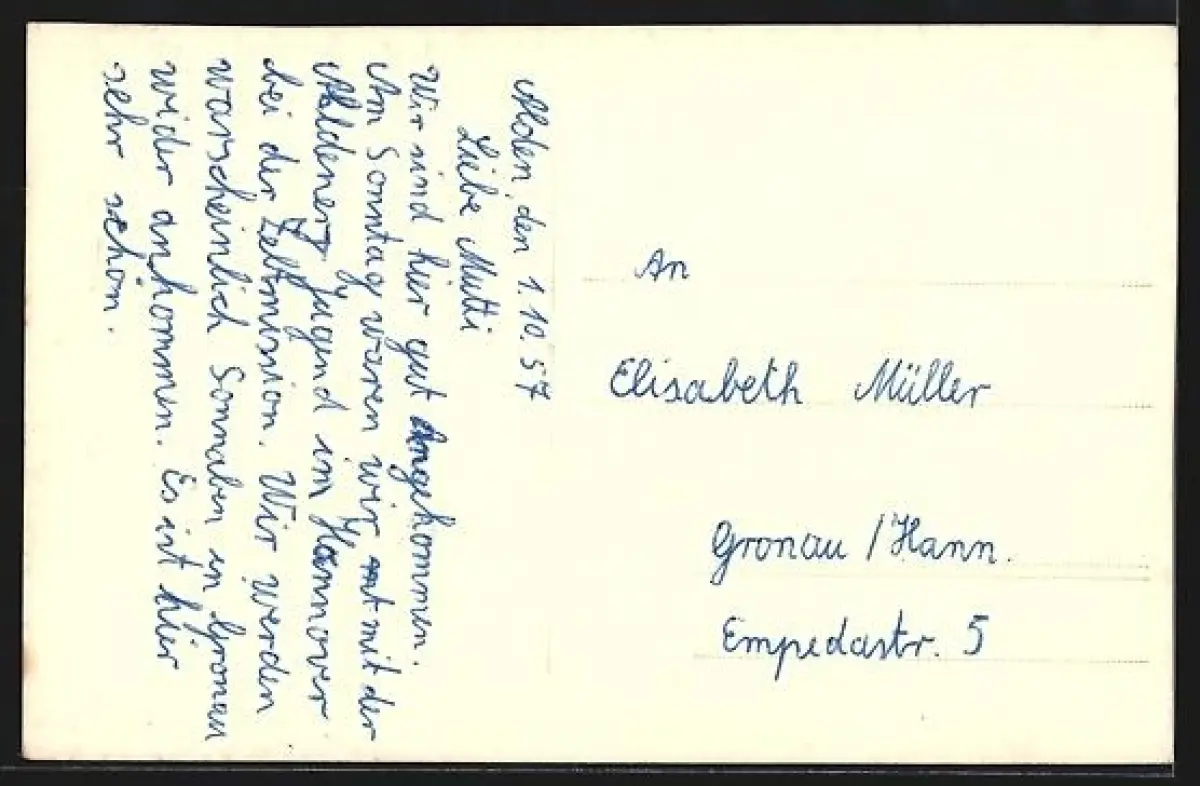 Alden, den 1.10.57
Liebe Mutti
Wir sind hier gut angekommen.
Am Sonntag waren wir mit der
Aldener Jugend im Hannover
bei der Zeltmission. Wir werden
warscheinlich Sonnaben in Gronau
wider ankommen. Es ist hier
sehr schön.
An
Elisabeth Müller
Gronau / Hann.
Empedastr. 5